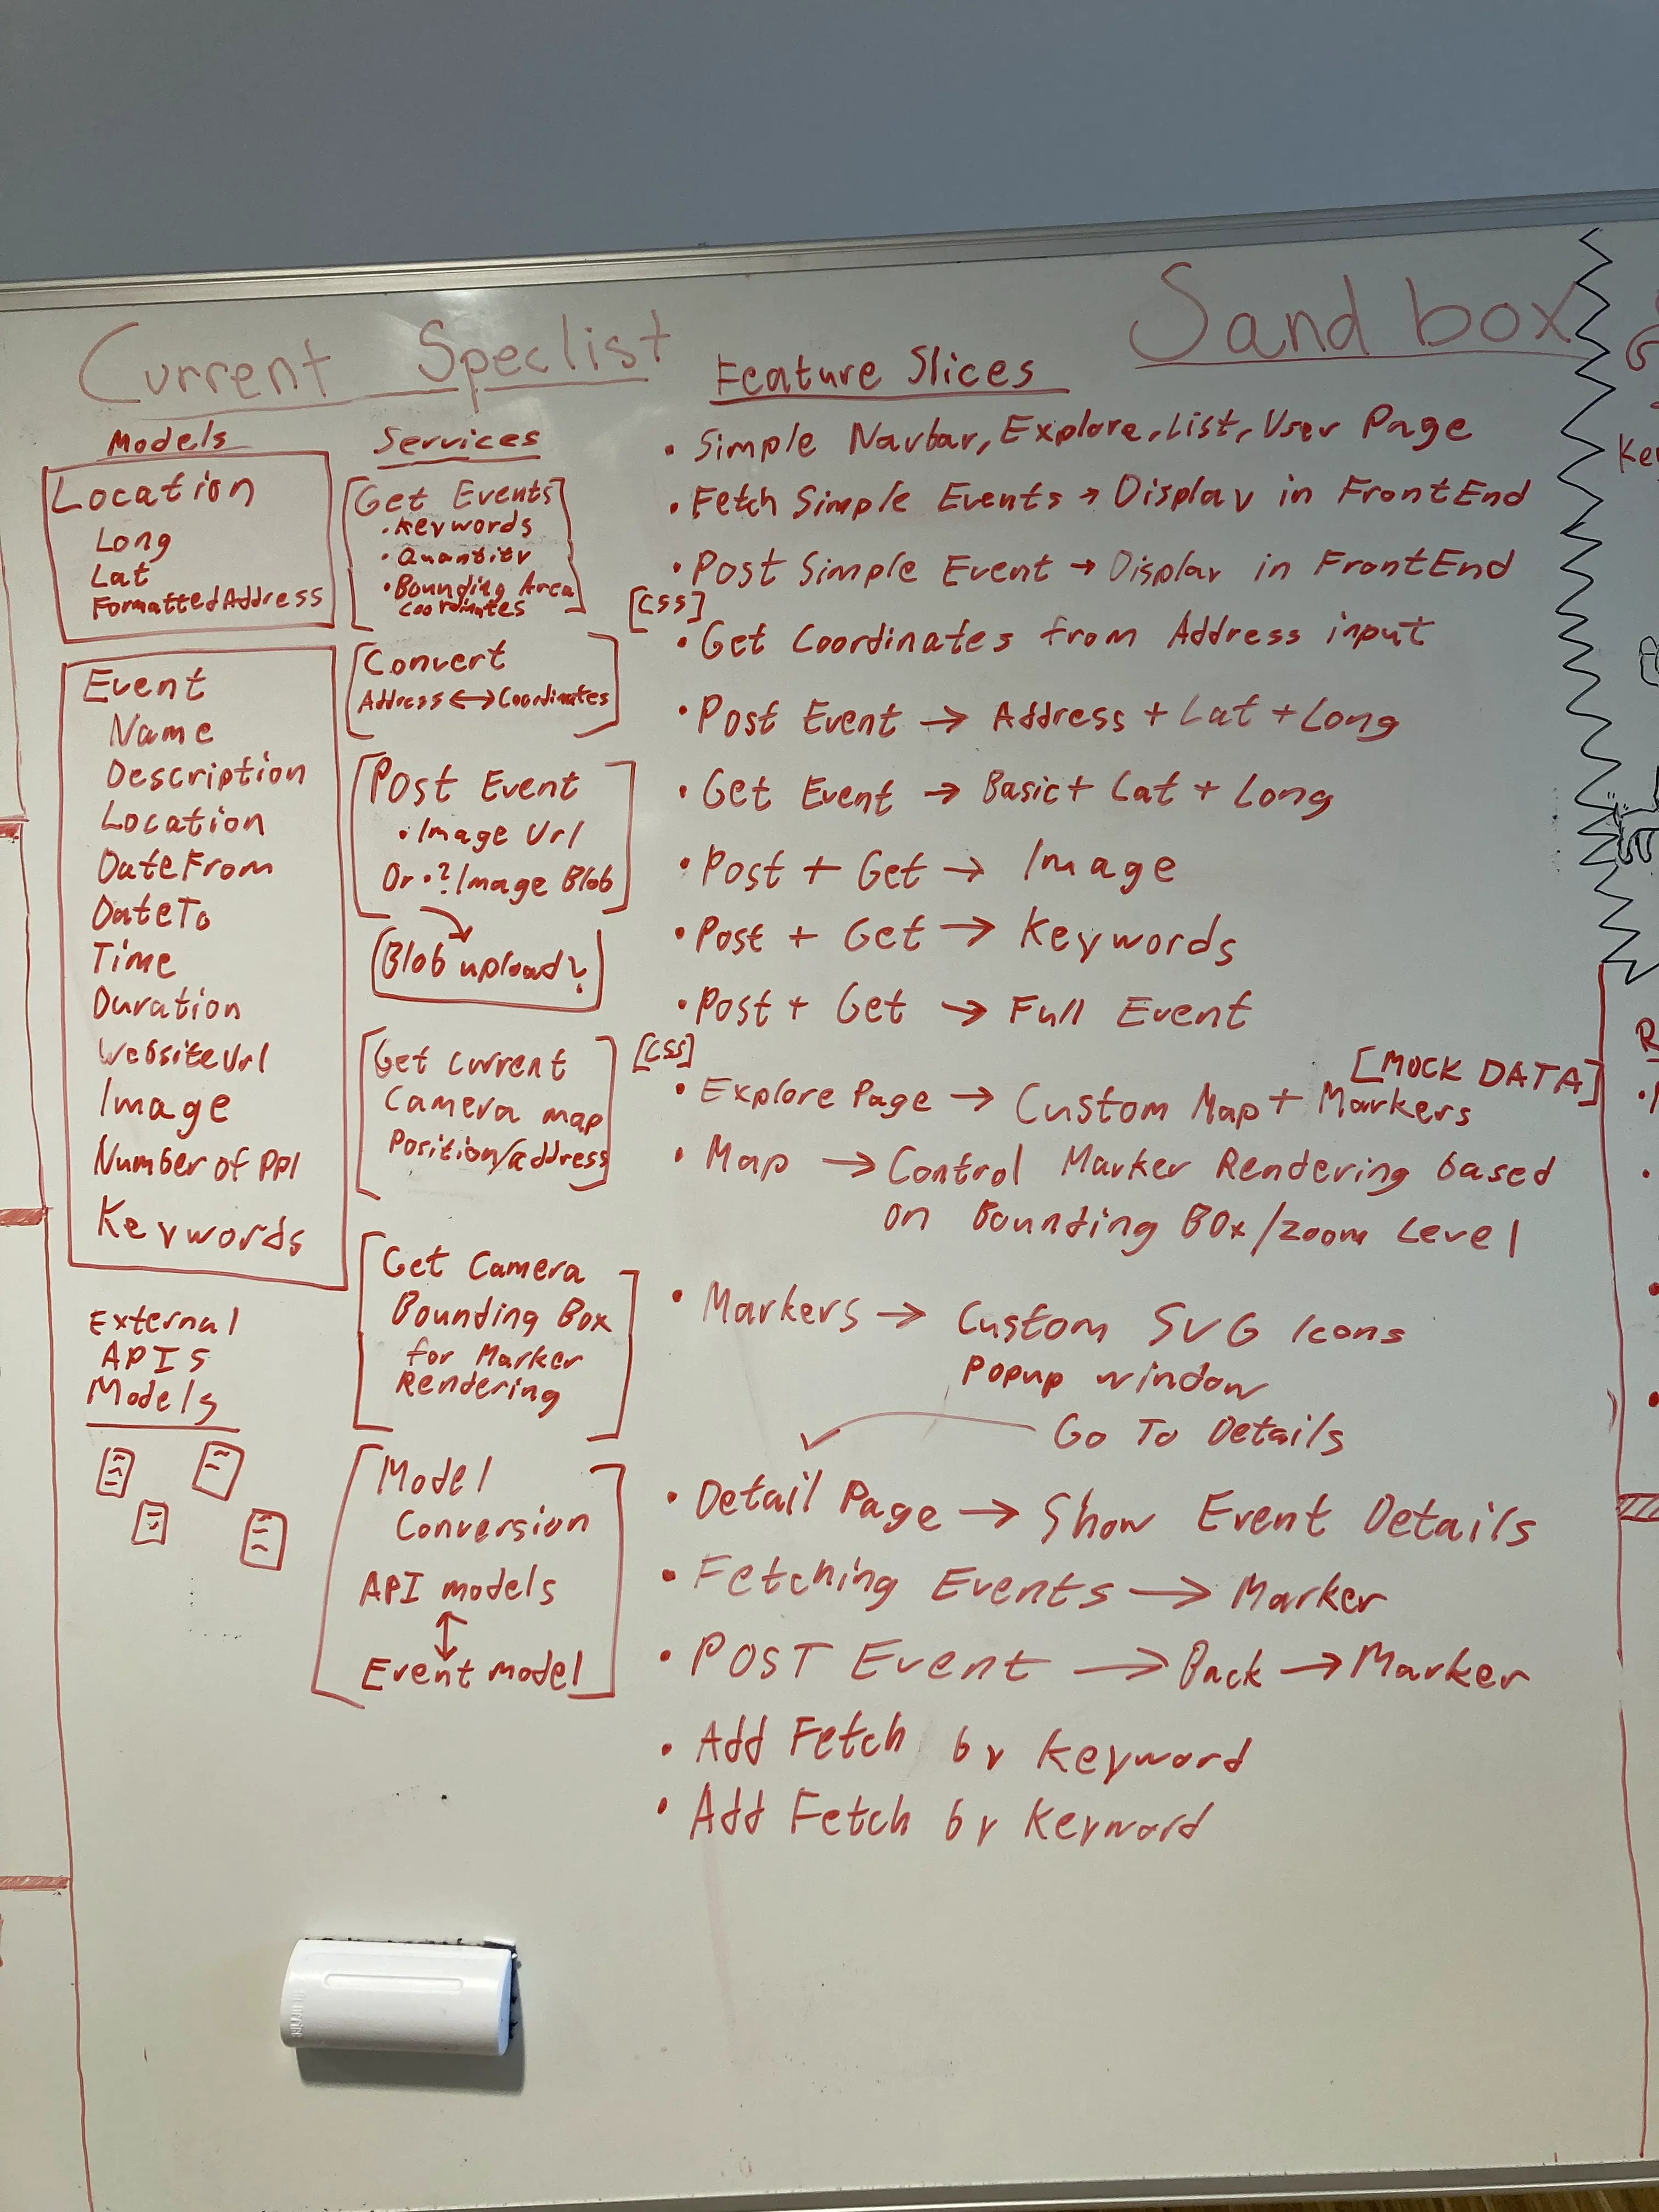 Current Speclist
Sandbox
Models
Location
Long
Lat
FormattedAddress
Event
Name
Description
Location
DateFrom
DateTo
Time
Duration
WebsiteUrl
Image
Number of PPl
Keywords
External
APIS
Models
Services
Get Events
• Keywords
• Quantity
• Bounding Area
Coordinates
Convert
Address ↔ Coordinates
Post Event
• Image Url
Or •? Image Blob
Blob upload?
Get current
Camera map
Position/address
Get Camera
Bounding Box
for Marker
Rendering
Model
Conversion
API models
↕
Event model
Feature Slices
• Simple Navbar, Explore, List, User Page
• Fetch Simple Events → Display in FrontEnd
• Post Simple Event → Display in FrontEnd
[CSS]
• Get Coordinates from Address input
• Post Event → Address + Lat + Long
• Get Event → Basic + Lat + Long
• Post + Get → Image
• Post + Get → Keywords
• Post + Get → Full Event
[CSS]
[MOCK DATA]
• Explore Page → Custom Map + Markers
• Map → Control Marker Rendering based
on Bounding BOx/zoom Level
• Markers → Custom SVG Icons
Popup window
Go To Details
• Detail Page → Show Event Details
• Fetching Events → Marker
• POST Event → Back → Marker
• Add Fetch by Keyword
• Add Fetch by Keyword